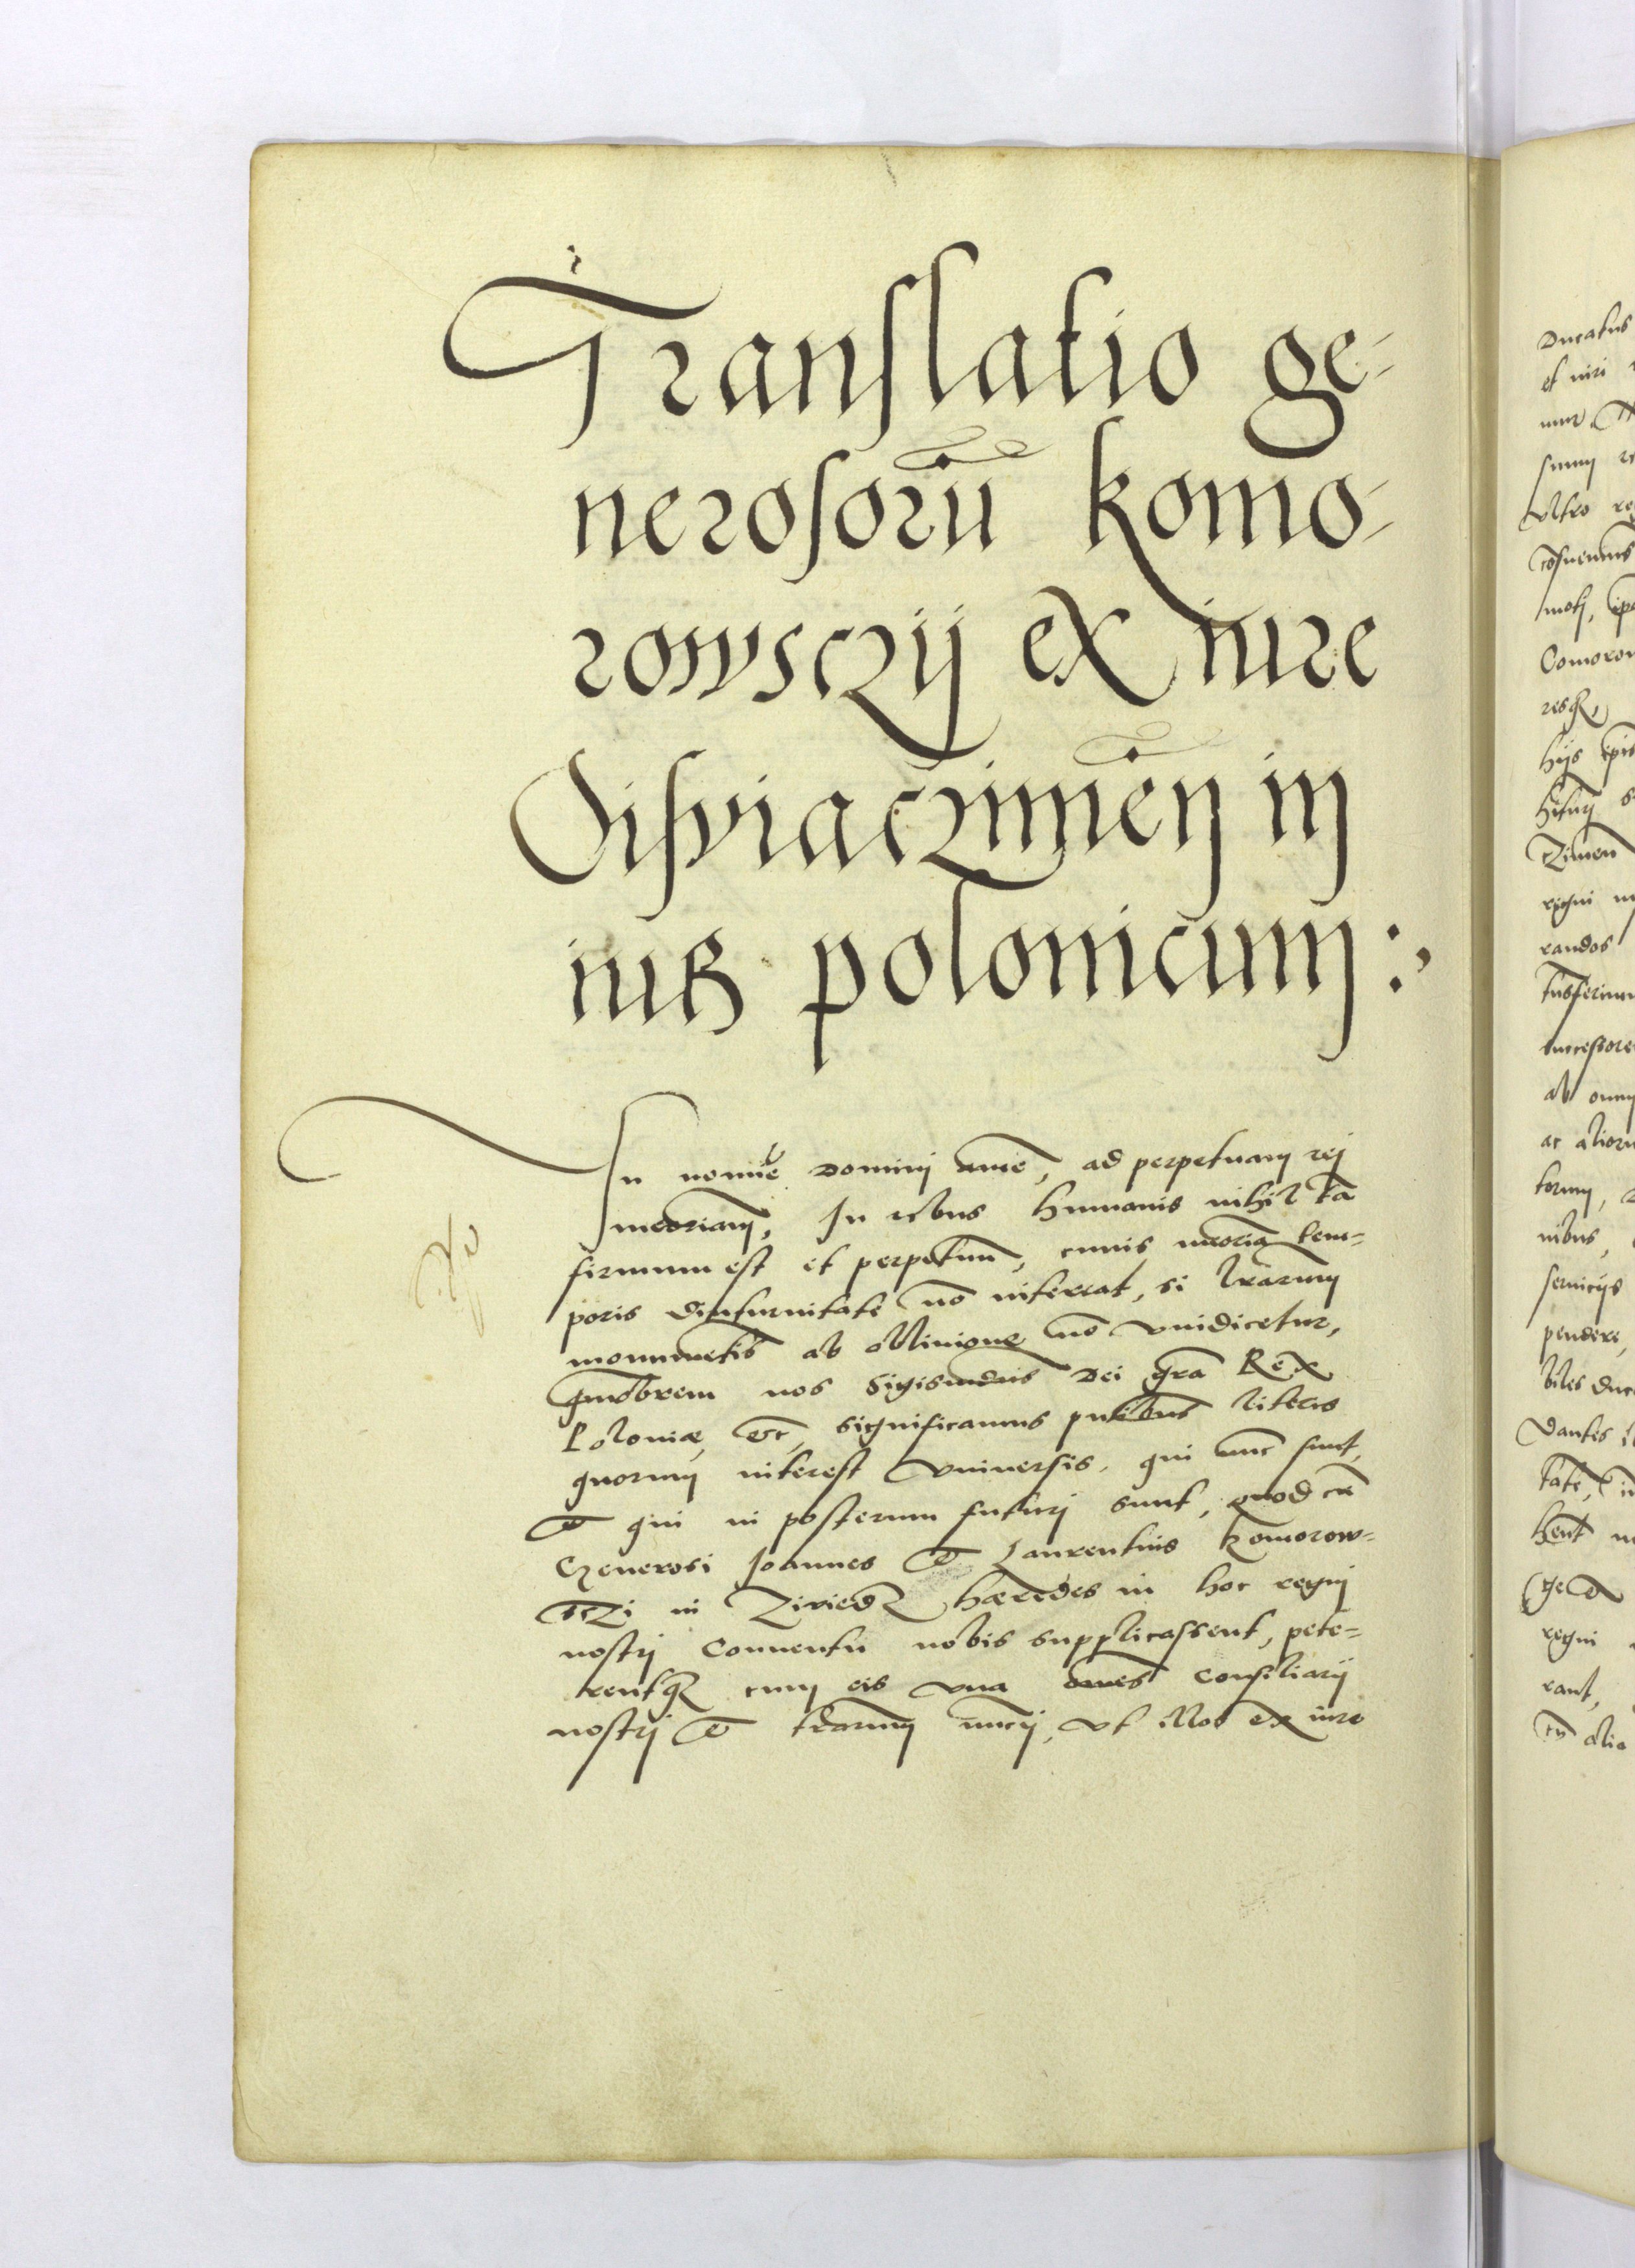 Translatio ge-
nerosorū Komo-
rowsczij ex iure
Osswiaczimēn in
iuß polonicum :,
In nomīe Domini amē, ad perpetuam rej
meoriam, In rebus humanis nihil tā
firmum est et perpetuum, cuius meoria tem=
poris diuturnitate nō intereat, si lrarum
monumētis ab obliuione nō vindicetur,
quāobrem nos Sigismūdus Dei gra Rex
Poloniæ, etc, significamus pntibus literis
quorum interest vniuersis, qui nunc sunt,
et qui in posterum futuri sunt, quod cū
Generosi Joannes et Laurentius Komorow=
sczi in Ziviedz hæredes in hoc regni
nostrj Conuentu nobis supplicassent, pete=
rentq cum eis vna omes Consiliarij
nostrj et terrarum nuncij, vt illos ex iure
Ducatus
et niri
sumus
vltro
motj,
Comorow
resq,
hijs
Zimen
regni
randos
successore
ab omn
ac alioru
torum,
nibus,
seruicijs
pendere,
biles duc
Dantes
tate,
hent
regni
rant,
cū alio